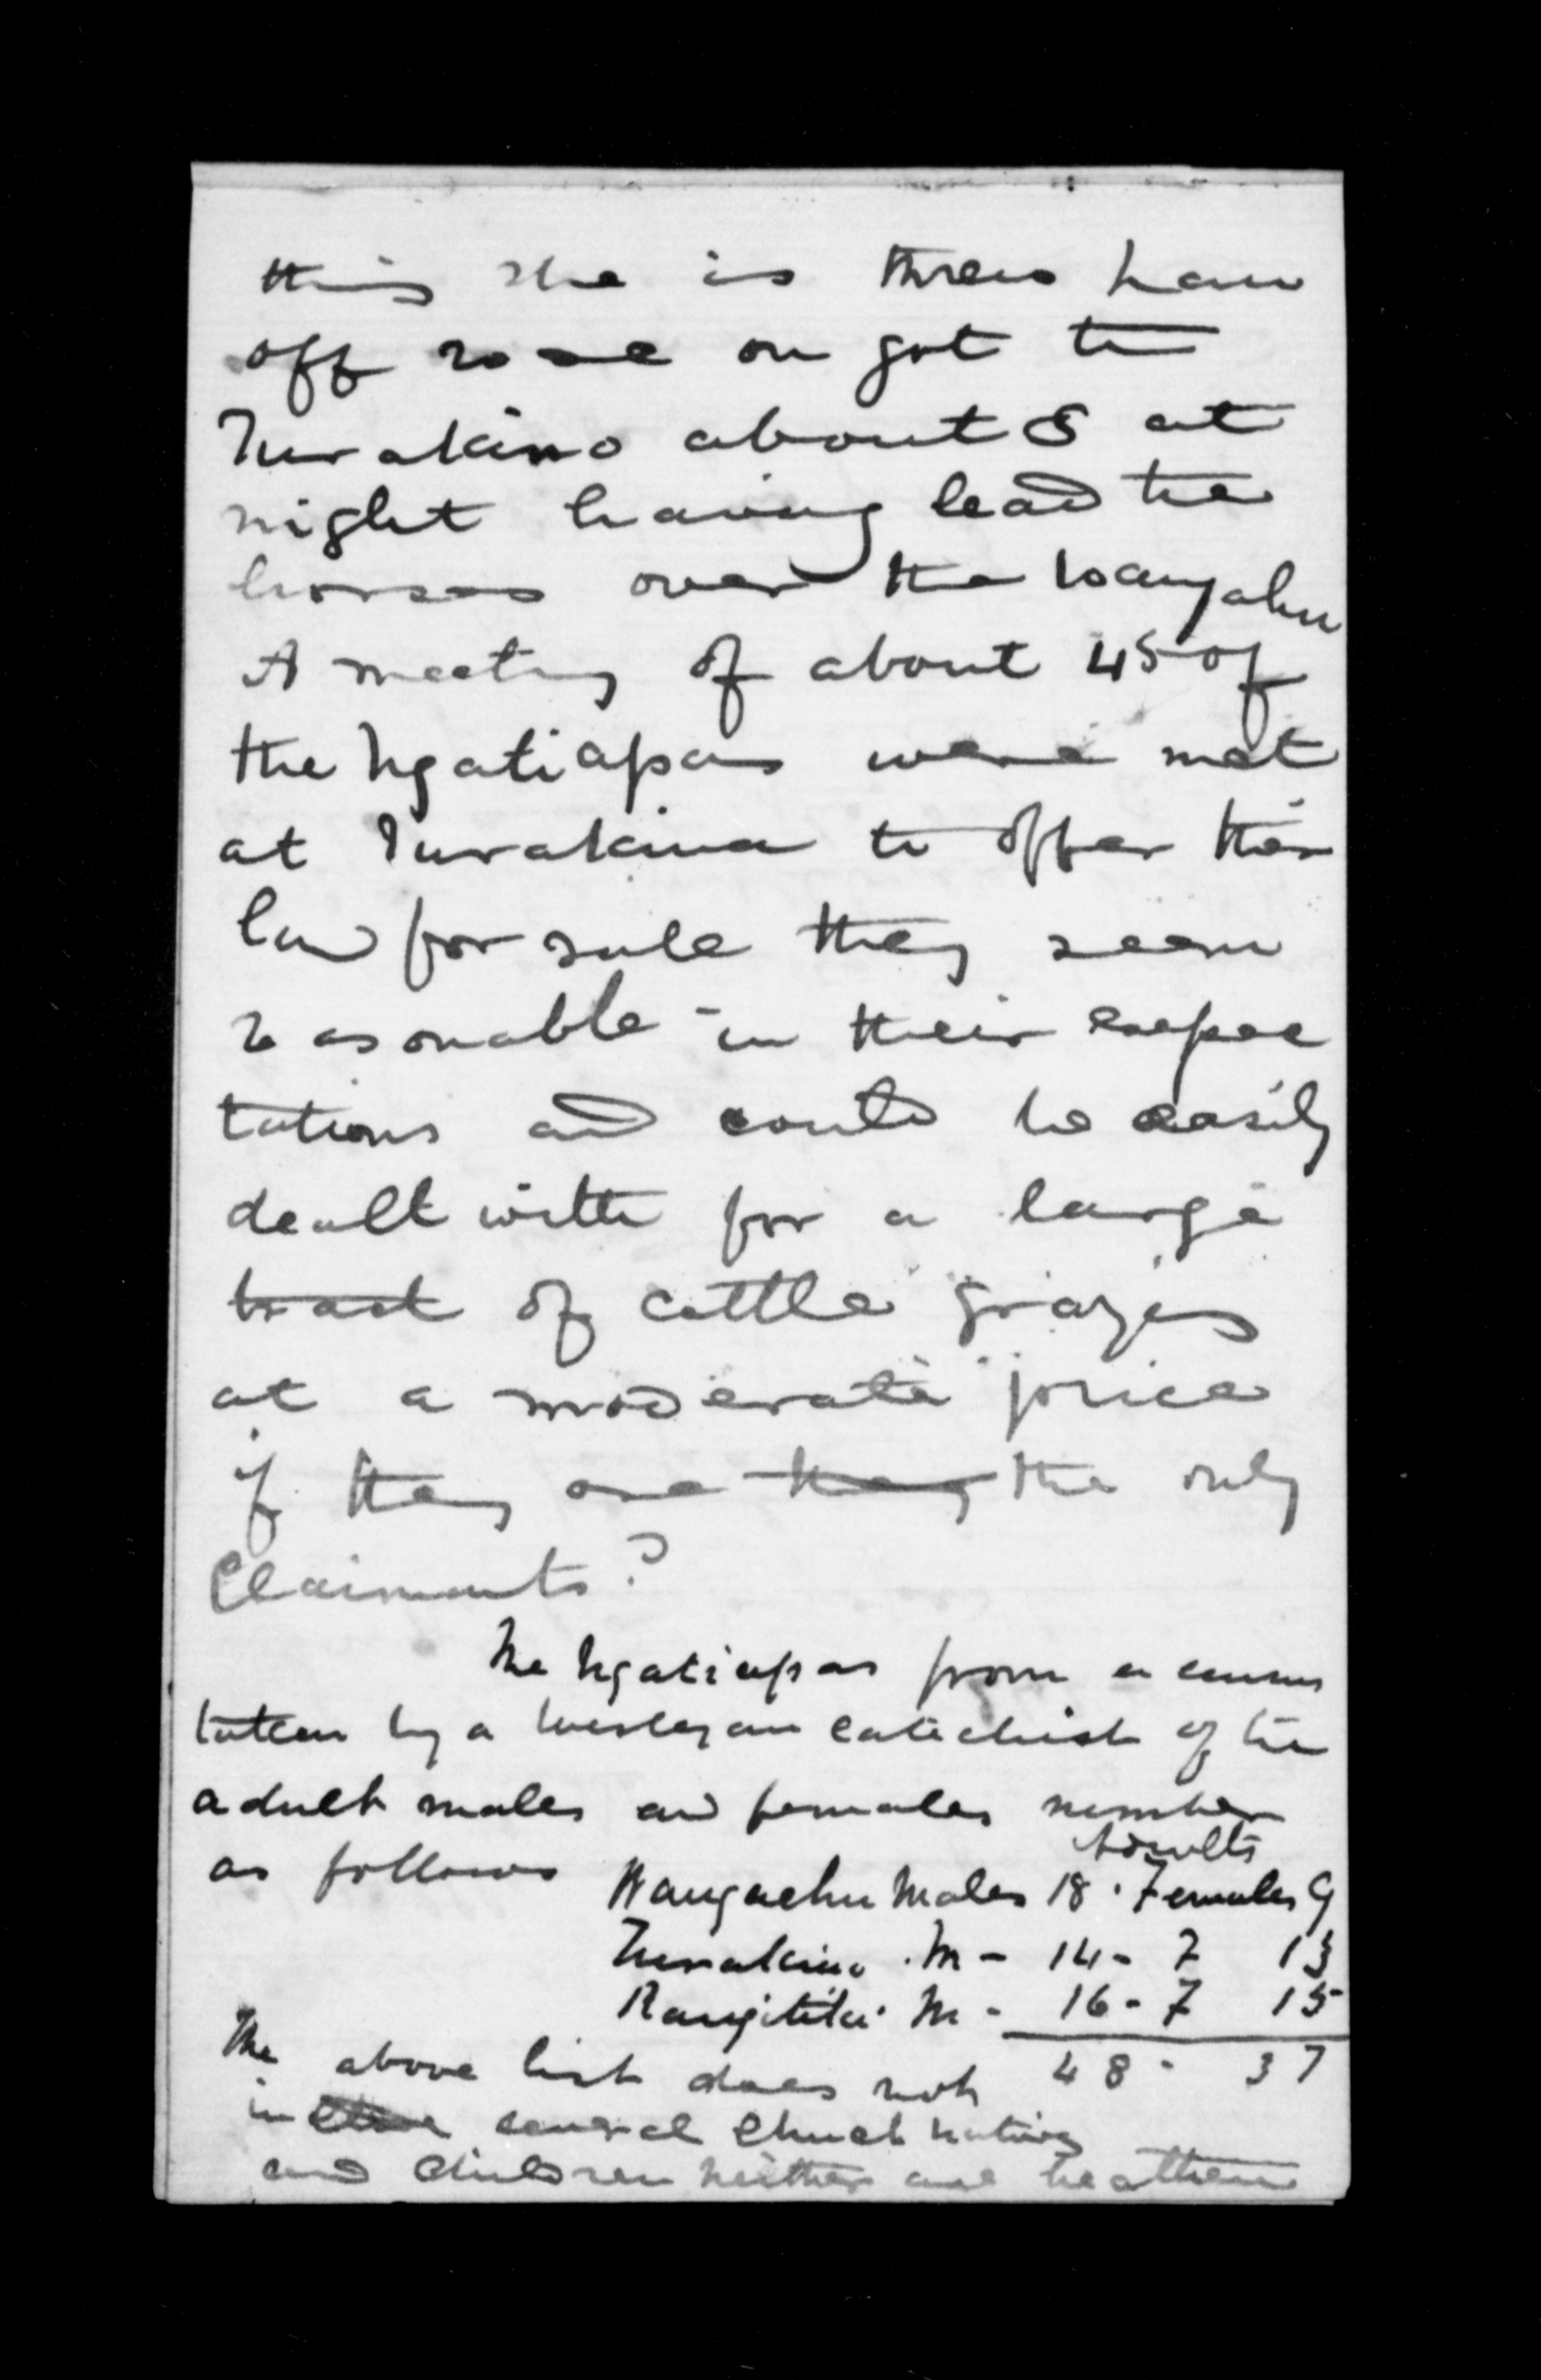 this she is threw have
off rode on got to
Turakino about 8 at
night having lead the
horses over the Wangahu
A meeting of about 45 of
the Ngatiapas were met
at Turakina to offer their
land for sale they seem
reasonable in their expec
tations and could be easily
dealt with for a large
tract of cattle grazing
at a moderate price
if they are they the only
Claimants?
The Ngatiapas from a census
taken by a Wesleyan catechist of the
adult males and females number
Adults
as follows Wangaehu Males 18 . Females 9
Turakino . M - 14 - F 13
Rangitikei M - 16 - F 15
The above list does not 48 - 37
in several Church natives
and Children neither are heathen